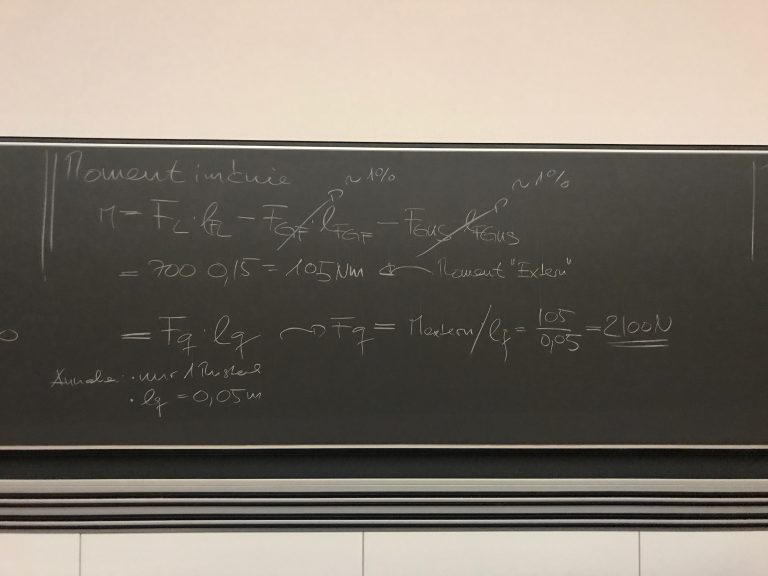 Moment im Knie
~1%
~1%
M = F_L · l_FL − F_GF l_FGF − F_GUS l_FGUS
= 700 0,15 = 105 Nm ← Moment "Extern"
= F_q · l_q → F_q = Mextern / l_q = 105/0,05 = 2100N
Annahme: · nur 1 Muskel
· l_q = 0,05 m